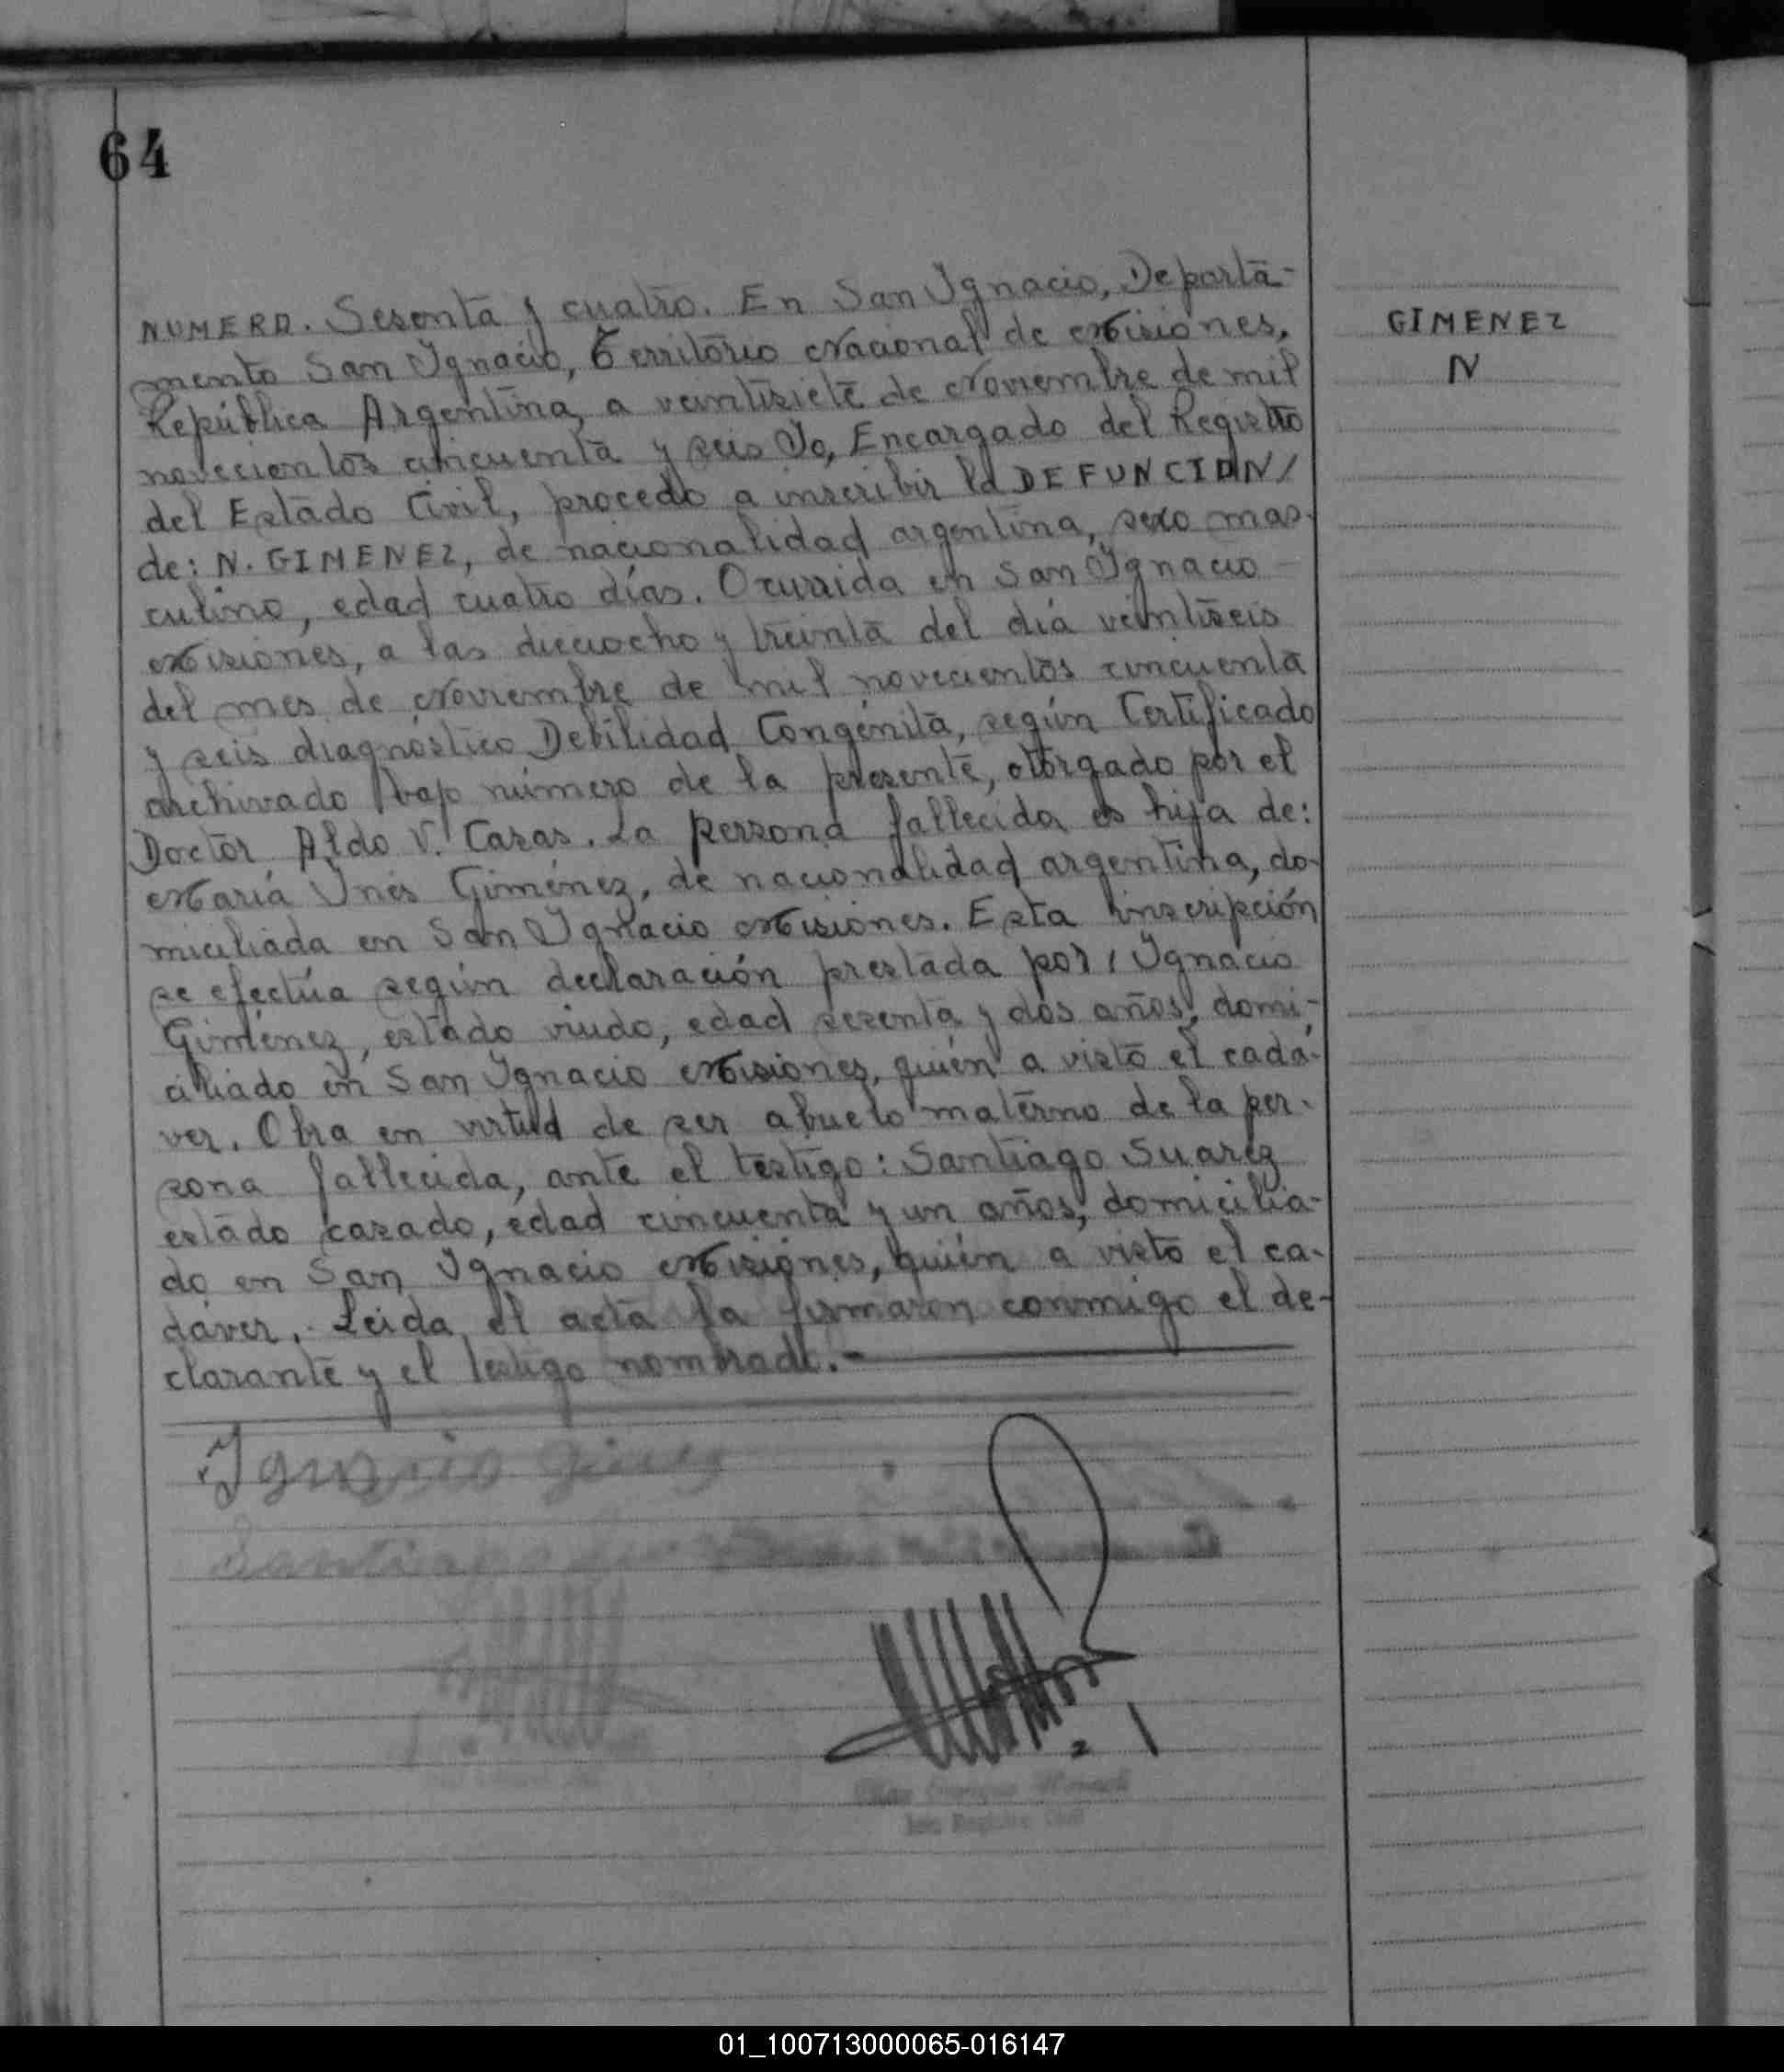 64
NUMERO. Sesenta y cuatro. En San Ignacio, Departa-
mento San Ignacio, Territorio Nacional de Misiones,
República Argentina, a veintisiete de Noviembre de mil
novecientos cincuenta y seis Yo, Encargado del Registro
del Estado Civil, procedo a inscribir la DEFUNCION/
de: N. GIMENEZ, de nacionalidad argentina, sexo mas-
culino, edad cuatro días. Ocurrida en San Ignacio -
Misiones, a las dieciocho y treinta del día veintiseis
del mes de Noviembre de mil novecientos cincuenta
y seis diagnóstico Debilidad Congénita, según Certificado
archivado bajo número de la presente, otorgado por el
Doctor Aldo V. Casas. La persona fallecida es hija de:
María Inés Giménez, de nacionalidad argentina, do-
miciliada en San Ignacio Misiones. Esta inscripción
se efectúa según declaración prestada por, Ignacio
Giménez, estado viudo, edad sesenta y dos años, domi-
ciliado en San Ignacio Misiones, quién a visto el cadá-
ver. Obra en virtud de ser abuelo materno de la per-
sona fallecida, ante el testigo: Santiago Suarez
estado casado, edad cincuenta y un años, domicilia-
do en San Ignacio Misiones, quién a visto el ca-
dáver. Leida el acta la firmaron conmigo el de-
clarante y el testigo nombrado.-
GIMENEZ
N
Ignacio
Santiago
Registro Civil
01_100713000065-016147